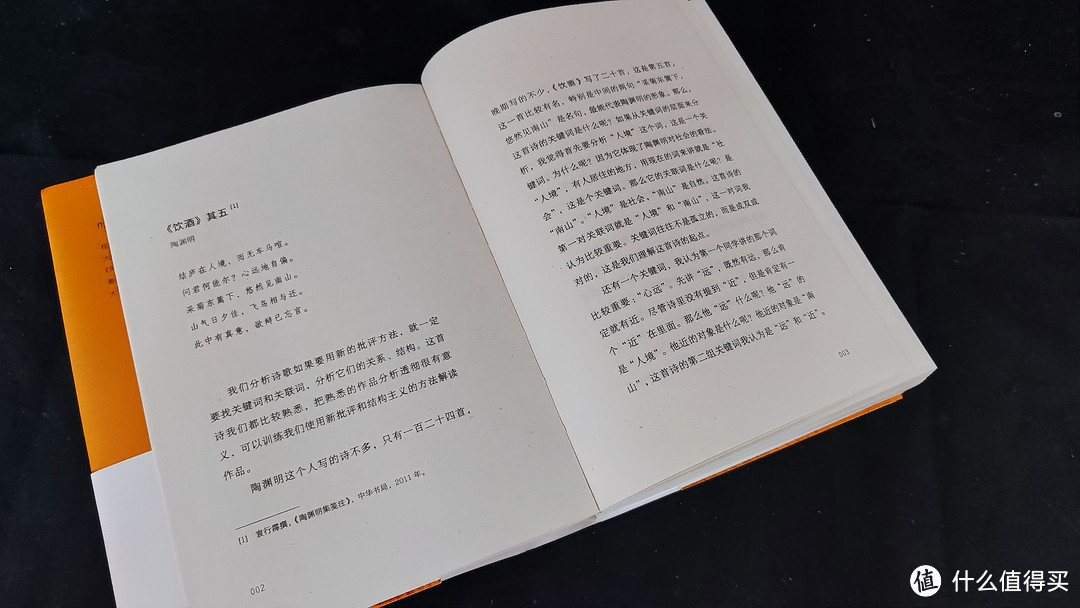 《饮酒》其五[1]
陶渊明
结庐在人境，而无车马喧。
问君何能尔？心远地自偏。
采菊东篱下，悠然见南山。
山气日夕佳，飞鸟相与还。
此中有真意，欲辩已忘言。
我们分析诗歌如果要用新的批评方法，就一定
要找关键词和关联词，分析它们的关系、结构。这首
诗我们都比较熟悉，把熟悉的作品分析透彻很有意
义，可以训练我们使用新批评和结构主义的方法解读
作品。
陶渊明这个人写的诗不多，只有一百二十四首，
[1] 袁行霈撰，《陶渊明集笺注》，中华书局，2011年。
002
晚期写的不少，《饮酒》写了二十首，这是第五首，
这一首比较有名，特别是中间的两句“采菊东篱下，
悠然见南山”是名句，最能代表陶渊明的形象。那么，
这首诗的关键词是什么呢？如果从关键词的层面来分
析，我觉得首先要分析“人境”这个词，这是一个关
键词。为什么呢？因为它体现了陶渊明对社会的看法。
“人境”，有人居住的地方，用现在的词来讲就是“社
会”，这是个关键词。那么它的关联词是什么呢？是
“南山”。“人境”是社会，“南山”是自然。这首诗的
第一对关联词就是“人境”和“南山”，这一对词我
认为比较重要。关键词往往不是孤立的，而是成双成
对的，这是我们理解这首诗的起点。
还有一个关键词，我认为第一个同学讲的那个词
比较重要：“心远”。先讲“远”，既然有远，那么肯
定就有近。尽管诗里没有提到“近”，但是肯定有一
个“近”在里面。那么他“远”什么呢？他“远”的
是“人境”。他近的对象是什么呢？他近的对象是“南
山”，这首诗的第二组关键词我认为是“远”和“近”。
003
值 什么值得买